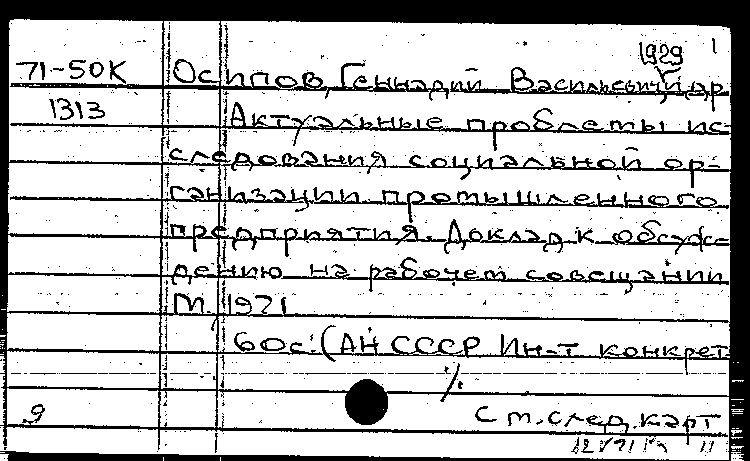 1929 1
71-50К Осипов, Геннадий Васильевич и др
1313 Актуальные проблемы ис-
следования социальной ор-
ганизации промышленного
предприятия. Доклад к обсуж-
дению на рабочем совещании
М, 1971
60с. (АН СССР Ин-т конкрет
·/.
9 См. след. карт
12 V 71